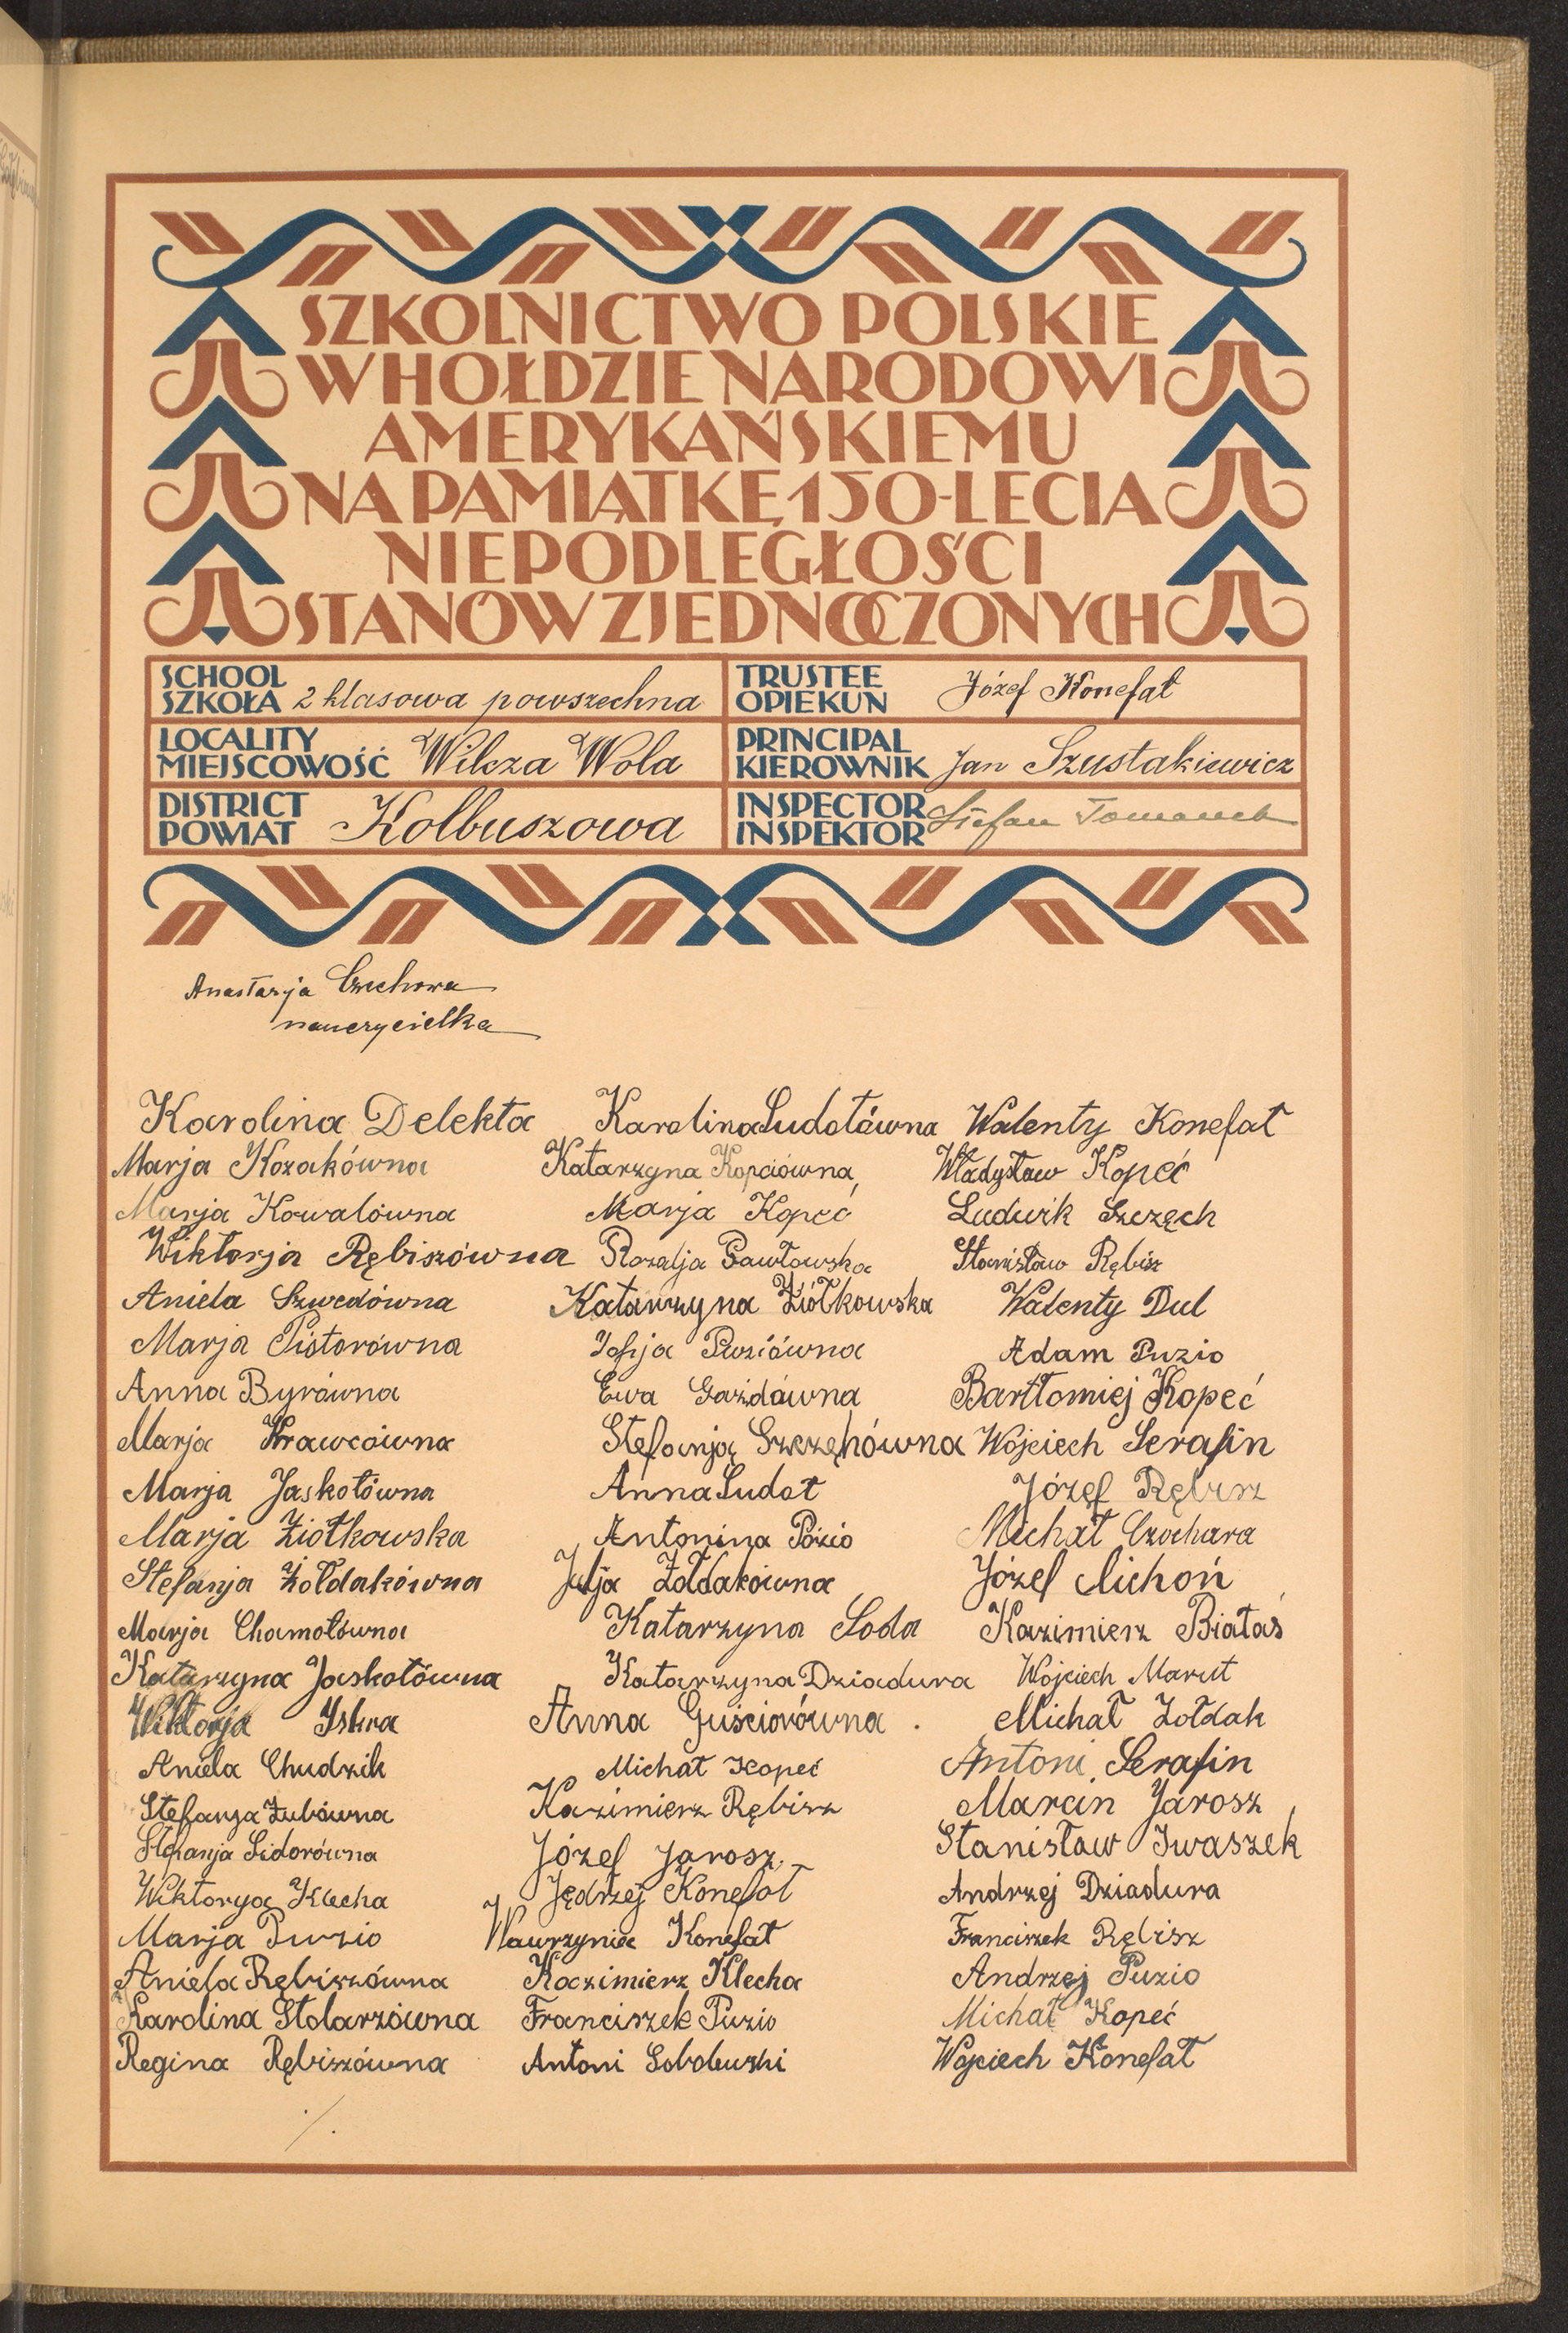 SZKOLNICTWO POLSKIE
W HOŁDZIE NARODOWI
AMERYKAŃSKIEMU
NA PAMIĄTKĘ 150-LECIA
NIEPODLEGŁOŚCI
STANÓW ZJEDNOCZONYCH
SCHOOL
SZKOŁA 2 klasowa powszechna
TRUSTEE
OPIEKUN Józef Konefał
LOCALITY
MIEJSCOWOŚĆ Wilcza Wola
PRINCIPAL
KIEROWNIK Jan Szustakiewicz
DISTRICT
POWIAT Kolbuszowa
INSPECTOR
INSPEKTOR Stefan Tomanek
Anastazja
nauczycielka
Karolina Delekta
Marja Kozakówna
Marja Kowalówna
Wiktorja Rębiszówna
Aniela Szwedówna
Marja Pistorówna
Anna Byrówna
Marja Krawcówna
Marja Jaskołówna
Marja Ziółkowska
Stefanja Żołdakówna
Marja Chamotówna
Katarzyna Jaskołówna
Wiktorja Iskra
Aniela Chudzik
Stefanja Zubówna
Stefanja Sidorówna
Wiktorya Klecha
Marja Puzio
Aniela Rębiszówna
Karolina Stolarzówna
Regina Rębiszówna
Karolina Sudołówna
Katarzyna Kopciówna
Marja Kopeć
Rozalja Pawłowska
Katarzyna Ziółkowska
Zofja Puziówna
Ewa Gażdówna
Stefanja Szczęhówna
Anna Sudoł
Antonina Pózio
Julja Żołdakówna
Katarzyna Soda
Katarzyna Dziadura
Anna Guściorówna.
Michał Kopeć
Kazimierz Rębisz
Józef Jarosz.
Jędrzej Konefał
Wawrzyniec Konefał
Kazimierz Klecha
Franciszek Puzio
Antoni Sobolewski
Walenty Konefał
Władysław Kopeć
Ludwik Szczęch
Stanisław Rębisz
Walenty Dul
Adam Puzio
Bartłomiej Kopeć
Wojciech Serafin
Józef Rębisz
Michał Czochara
Józef Cichoń
Kazimierz Białaś
Wojciech Marut
Michał Żołdak
Antoni Serafin
Marcin Jarosz
Stanisław Iwaszek
Andrzej Dziadura
Franciszek Rębisz
Andrzej Puzio
Michał Kopeć
Wojciech Konefał